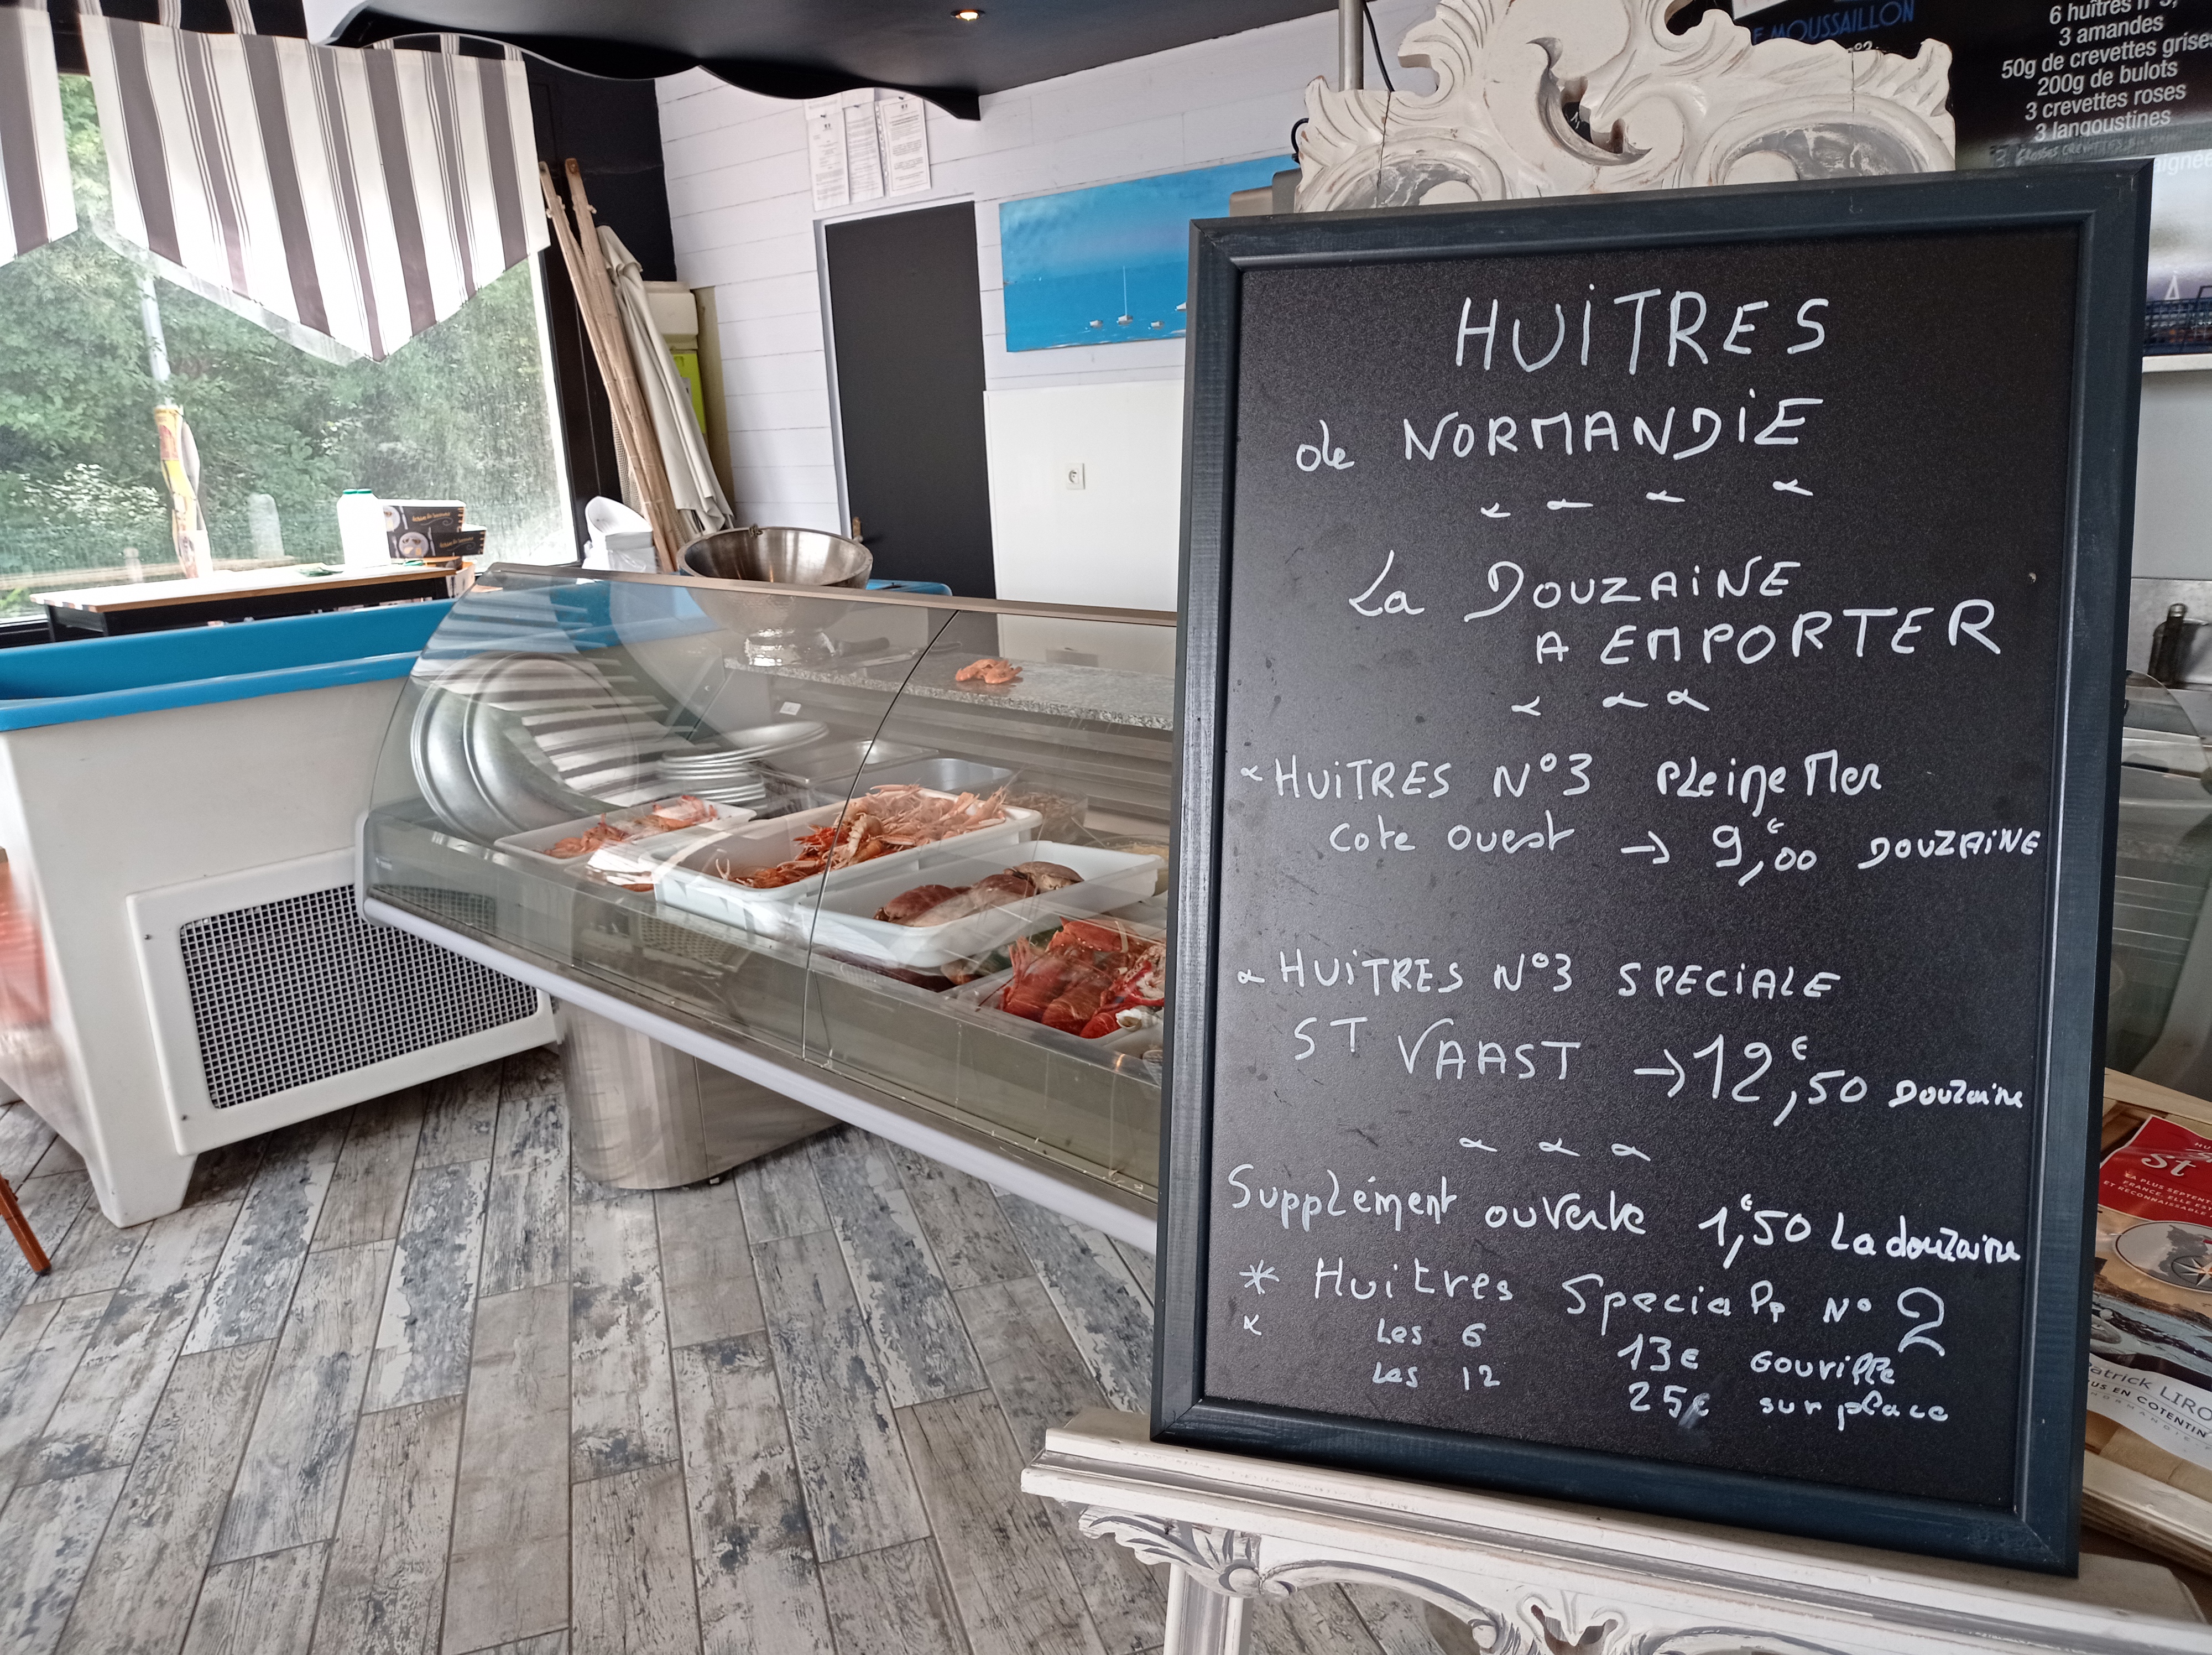 E MOUSSAILLON
6 huîtres n°3,
3 amandes
50g de crevettes grises
200g de bulots
3 crevettes roses
3 langoustines
HUiTRES
de NORMANDiE
La DOUZAiNE
A EMPORTER
HUiTRES N°3 PLeine Mer
Cote ouest → 9,00€ DOUZAiNE
HUiTRES N°3 SPECiALE
ST VAAST → 12,50€ Douzaine
Supplément ouverte 1,50€ La douzaine
* Huitres Special N° 2
Les 6 13€ Gouville
Les 12 25€ sur place
St
LA PLUS SEPTEN
FRANCE, ELLE
ET RECONNAISSABLE
atrick LIRO
US EN COTENTIN